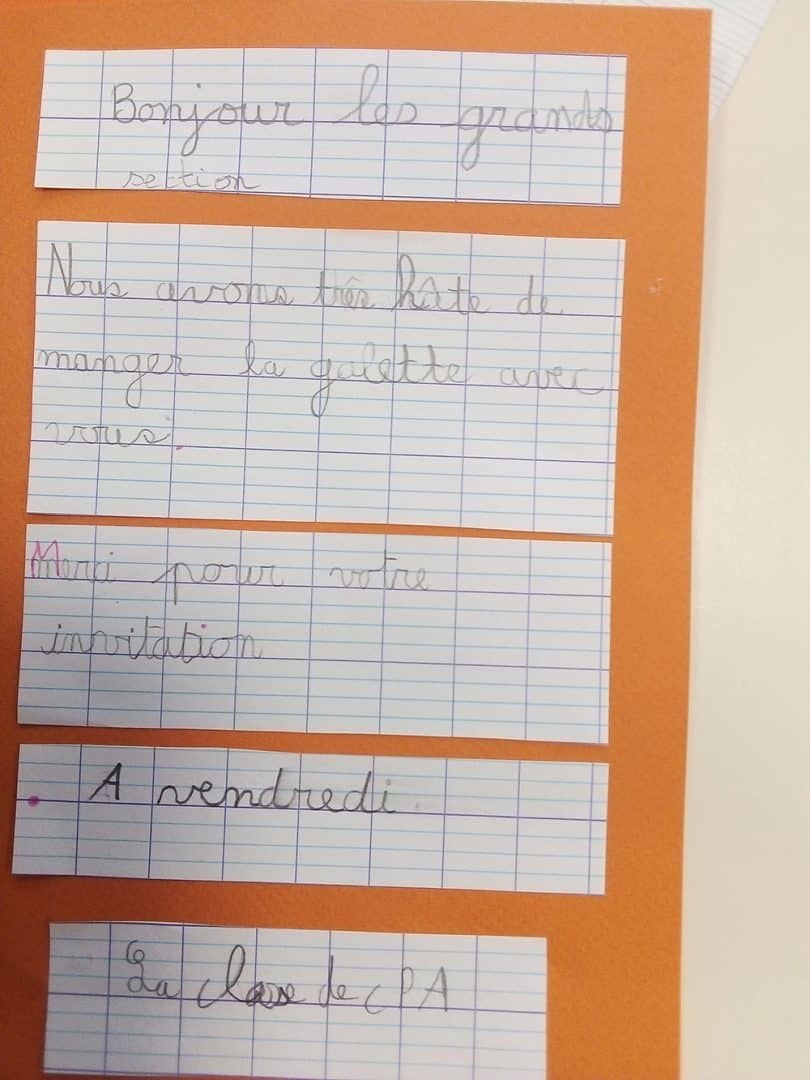 Bonjour les grands
section
Nous avons très hâte de
manger la galette avec
vous.
Merci pour votre
invitation
A vendredi.
La classe de CPA